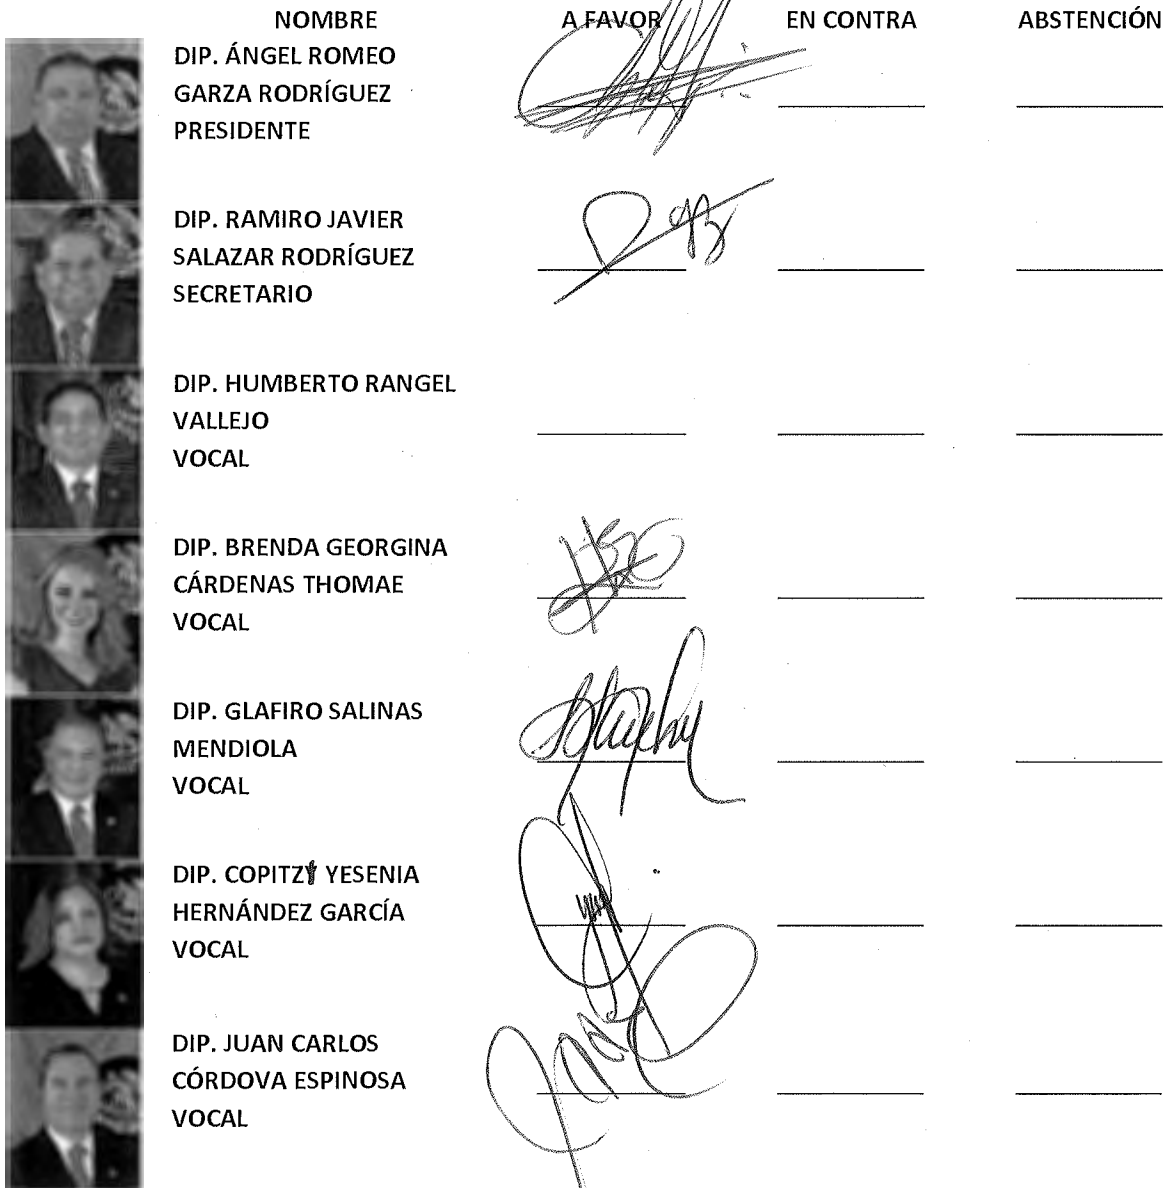 NOMBRE A FAVOR EN CONTRA ABSTENCIÓN
DIP. ÁNGEL ROMEO
GARZA RODRÍGUEZ
PRESIDENTE
DIP. RAMIRO JAVIER
SALAZAR RODRÍGUEZ
SECRETARIO
DIP. HUMBERTO RANGEL
VALLEJO
VOCAL
DIP. BRENDA GEORGINA
CÁRDENAS THOMAE
VOCAL
DIP. GLAFIRO SALINAS
MENDIOLA
VOCAL
DIP. COPITZY YESENIA
HERNÁNDEZ GARCÍA
VOCAL
DIP. JUAN CARLOS
CÓRDOVA ESPINOSA
VOCAL